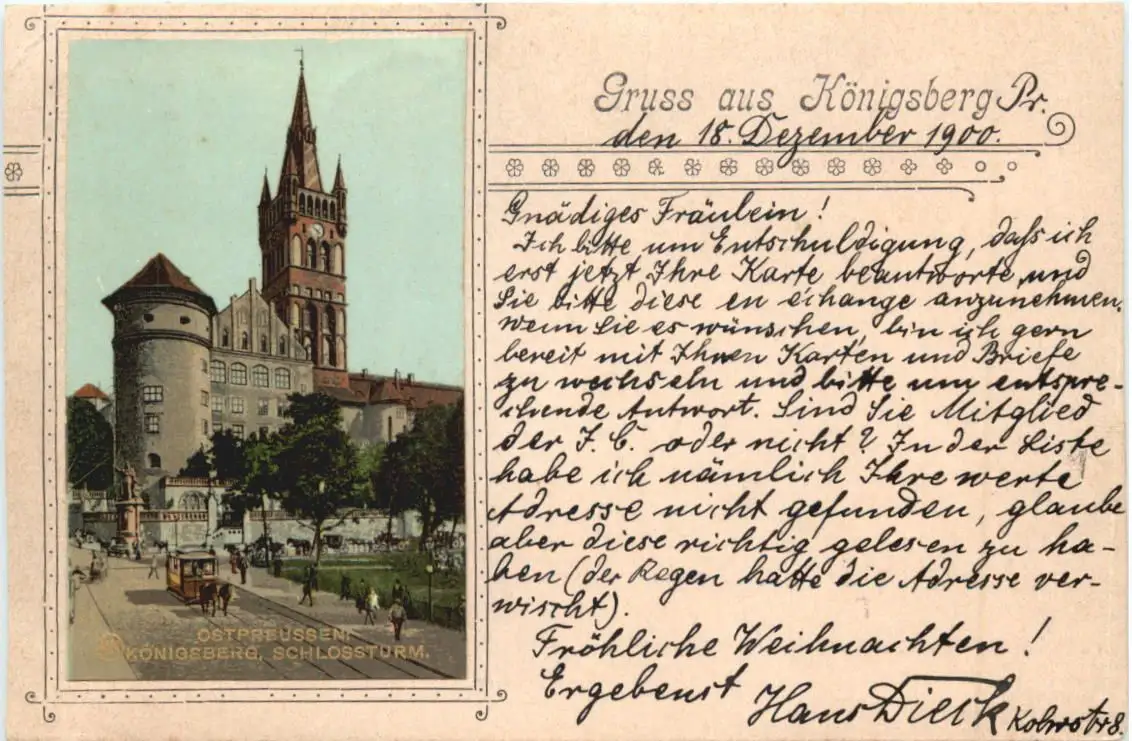 OSTPREUSSEN.
KÖNIGSBERG, SCHLOSSTURM.
Gruss aus Königsberg Pr.
den 18. Dezember 1900.
Gnädiges Fräulein!
Ich bitte um Entschuldigung, daſs ich
erst jetzt Ihre Karte beantworte, und
Sie bitte diese en échange anzunehmen.
Wenn Sie es wünschen, bin ich gern
bereit mit Ihnen Karten und Briefe
zu wechseln und bitte um entspre-
chende Antwort. Sind Sie Mitglied
der I. C. oder nicht? In der Liste
habe ich nämlich Ihre werte
Adresse nicht gefunden, glaube
aber diese richtig gelesen zu ha-
ben (der Regen hatte die Adresse ver-
wischt).
Fröhliche Weihnachten!
Ergebenst
Hans Dieck